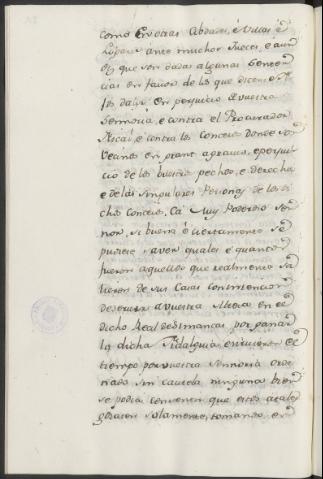 como en otras Cibdades, é Villas é
Lugares ante muchos Jueces, é aun
diz que son dadas algunas Senten-
cias en favor de los que dicen ser
en perjuicio de vuestra
Señoria, é contra el Procurador
Fiscal, é contra los Concejos donde son
Vecinos en grant agravio, e perjui-
cio de los vuestros pechos, e derechos
e de las singulares Personas de los di-
chos Concejos. Ca Muy Poderoso Se-
ñor, si buena é ciertamente se
pudiese saver quales é quantos
fueron aquellos que realmente sa-
lieron de sus Casas con intencion
de servir a vuestra Alteza en el
dicho Real de Simancas por ganar
la dicha Fidalguia, é estuvieron el
tiempo por vuestra Señoria orde-
nado sin cautela ninguna bien
se podia consentir que estos atales
gozasen solamente, tomando en